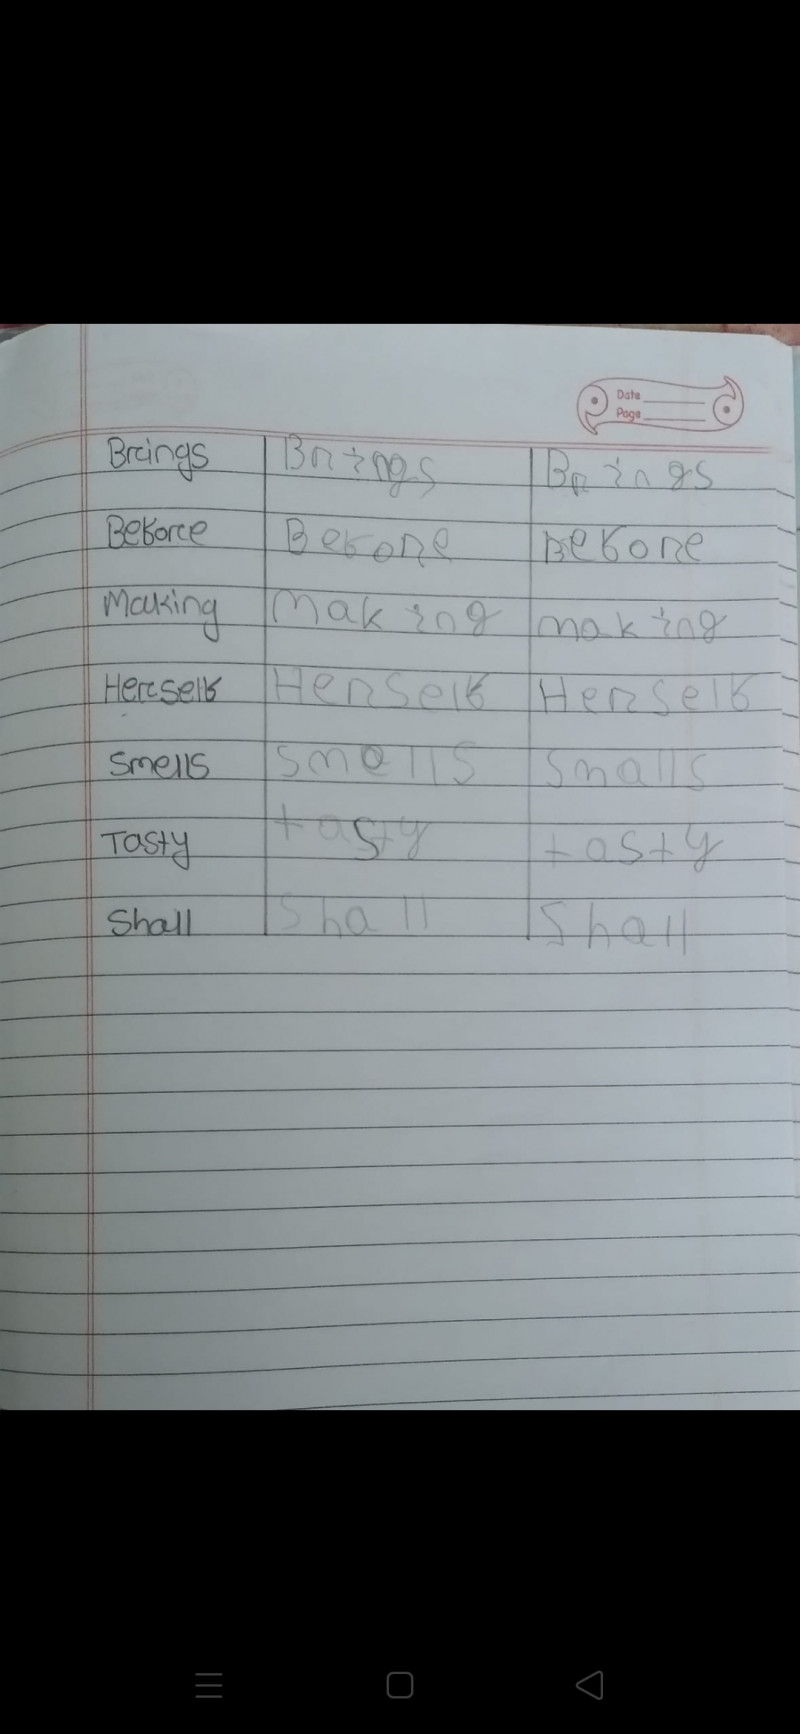 Date
Page
Brings Brings Brings
Before Before Before
Making making making
Herself Herself Herself
Smells smells Smalls
Tasty tasty tasty
Shall Shall Shall